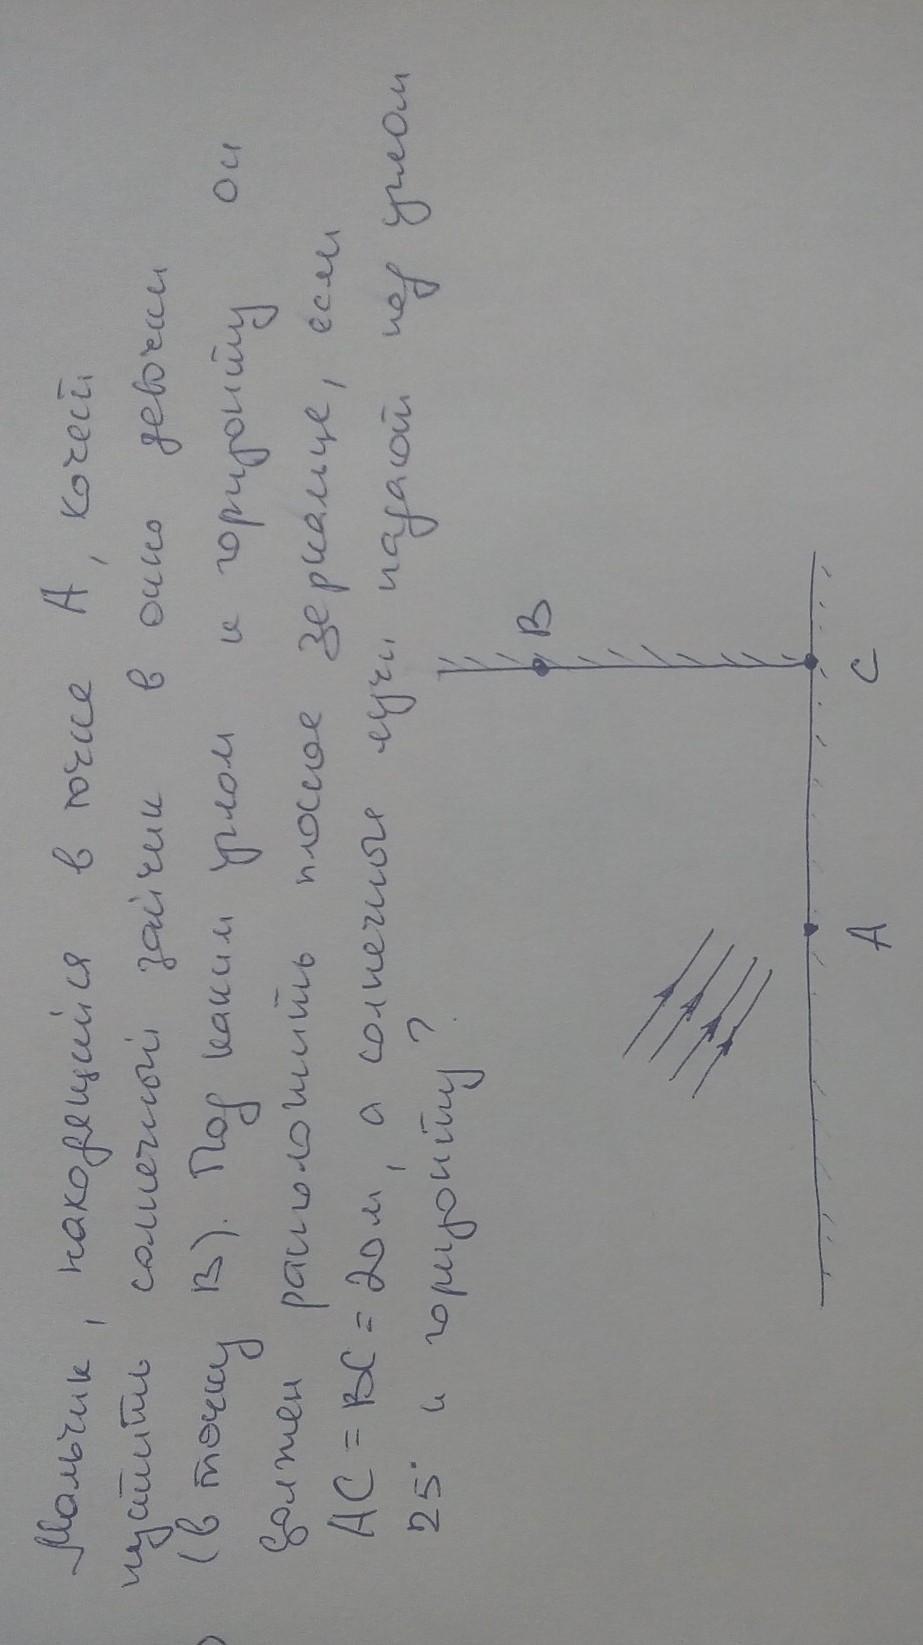 Мальчик, находящийся в точке А, хочет
пустить солнечный зайчик в окно девочки
(в точку В). Под каким углом к горизонту он
должен расположить плоское зеркальце, если
АС = ВС = 20м, а солнечные лучи падают под углом
25° к горизонту?
В
А
С